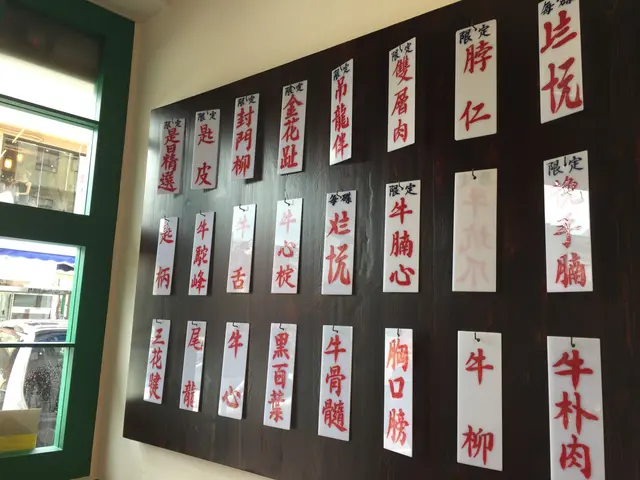 限定
是日精選
限定
匙皮
限定
封門柳
限定
金花趾
吊龍伴
限定
雙層肉
限定
脖仁
匙柄
牛駝峰
牛舌
牛心椗
限定
牛腩心
牛坑爪
限定
挽手腩
三花腱
尾龍
牛心
黑百葉
牛骨髓
胸口膀
牛柳
牛朴肉